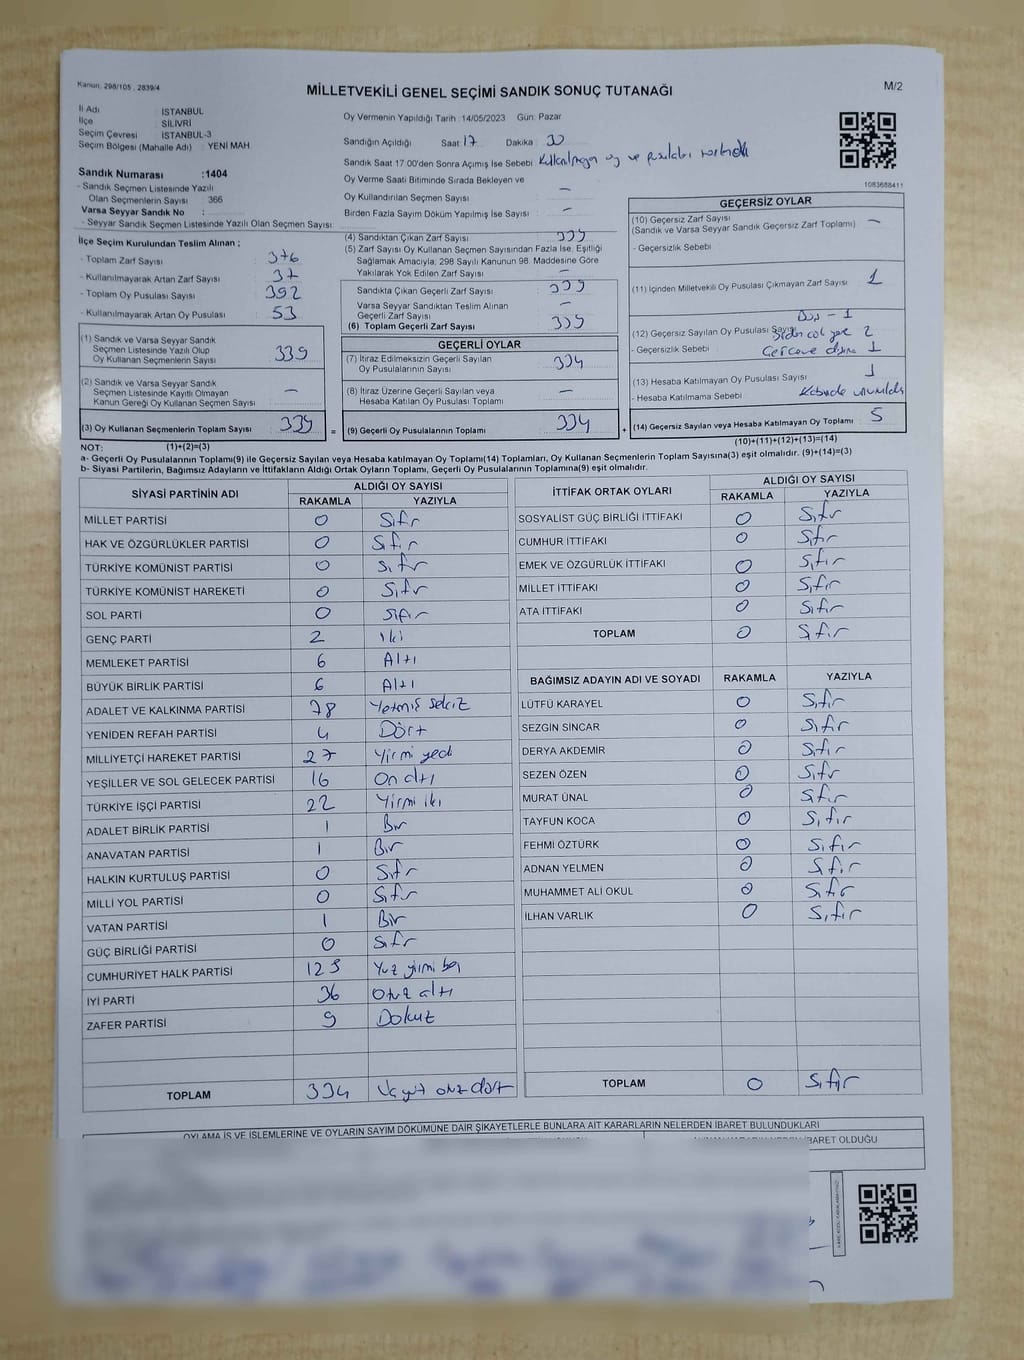 Kanun: 298/105 , 2839/4
MİLLETVEKİLİ GENEL SEÇİMİ SANDIK SONUÇ TUTANAĞI
M/2
İl Adı : İSTANBUL
İlçe : SİLİVRİ
Seçim Çevresi : İSTANBUL-3
Seçim Bölgesi (Mahalle Adı) : YENİ MAH
Sandık Numarası :1404
- Sandık Seçmen Listesinde Yazılı
Olan Seçmenlerin Sayısı : 366
Varsa Seyyar Sandık No :
- Seyyar Sandık Seçmen Listesinde Yazılı Olan Seçmen Sayısı:
Oy Vermenin Yapıldığı Tarih :14/05/2023 Gün: Pazar
Sandığın Açıldığı Saat : 17 Dakika : 30
Sandık Saat 17.00'den Sonra Açımış İse Sebebi : Kullanılmayan oy ve pusulaları
Oy Verme Saati Bitiminde Sırada Bekleyen ve
Oy Kullandırılan Seçmen Sayısı : —
Birden Fazla Sayım Döküm Yapılmış İse Sayısı : —
1083688411
İlçe Seçim Kurulundan Teslim Alınan ;
- Toplam Zarf Sayısı : 376
- Kullanılmayarak Artan Zarf Sayısı : 37
- Toplam Oy Pusulası Sayısı : 392
- Kullanılmayarak Artan Oy Pusulası : 53
(1) Sandık ve Varsa Seyyar Sandık
Seçmen Listesinde Yazılı Olup
Oy Kullanan Seçmenlerin Sayısı : 339
(2) Sandık ve Varsa Seyyar Sandık
Seçmen Listesinde Kayıtlı Olmayan
Kanun Gereği Oy Kullanan Seçmen Sayısı : —
(3) Oy Kullanan Seçmenlerin Toplam Sayısı : 339
(4) Sandıktan Çıkan Zarf Sayısı : 339
(5) Zarf Sayısı Oy Kullanan Seçmen Sayısından Fazla İse, Eşitliği
Sağlamak Amacıyla, 298 Sayılı Kanunun 98. Maddesine Göre
Yakılarak Yok Edilen Zarf Sayısı : —
Sandıkta Çıkan Geçerli Zarf Sayısı : 339
Varsa Seyyar Sandıktan Teslim Alınan
Geçerli Zarf Sayısı : —
(6) Toplam Geçerli Zarf Sayısı : 339
GEÇERLİ OYLAR
(7) İtiraz Edilmeksizin Geçerli Sayılan
Oy Pusulalarının Sayısı : 334
(8) İtiraz Üzerine Geçerli Sayılan veya
Hesaba Katılan Oy Pusulası Toplamı : —
= (9) Geçerli Oy Pusulalarının Toplamı : 334
GEÇERSİZ OYLAR
(10) Geçersiz Zarf Sayısı : —
(Sandık ve Varsa Seyyar Sandık Geçersiz Zarf Toplamı)
- Geçersizlik Sebebi :
(11) İçinden Milletvekili Oy Pusulası Çıkmayan Zarf Sayısı : 1
Boş - 1
(12) Geçersiz Sayılan Oy Pusulası Sayısı : 2
- Geçersizlik Sebebi : Çerçeve dışına 1
(13) Hesaba Katılmayan Oy Pusulası Sayısı : 1
- Hesaba Katılmama Sebebi : Kabinde unutuldu
+ (14) Geçersiz Sayılan veya Hesaba Katılmayan Oy Toplamı : 5
NOT: (1)+(2)=(3)
(10)+(11)+(12)+(13)=(14)
a- Geçerli Oy Pusulalarının Toplamı(9) ile Geçersiz Sayılan veya Hesaba Katılmayan Oy Toplamı(14) Toplamları, Oy Kullanan Seçmenlerin Toplam Sayısına(3) eşit olmalıdır. (9)+(14)=(3)
b- Siyasi Partilerin, Bağımsız Adayların ve İttifakların Aldığı Ortak Oyların Toplamı, Geçerli Oy Pusulalarının Toplamına(9) eşit olmalıdır.
SİYASİ PARTİNİN ADI ALDIĞI OY SAYISI
RAKAMLA YAZIYLA
MİLLET PARTİSİ 0 Sıfır
HAK VE ÖZGÜRLÜKLER PARTİSİ 0 Sıfır
TÜRKİYE KOMÜNİST PARTİSİ 0 Sıfır
TÜRKİYE KOMÜNİST HAREKETİ 0 Sıfır
SOL PARTİ 0 Sıfır
GENÇ PARTİ 2 İki
MEMLEKET PARTİSİ 6 Altı
BÜYÜK BİRLİK PARTİSİ 6 Altı
ADALET VE KALKINMA PARTİSİ 78 Yetmiş sekiz
YENİDEN REFAH PARTİSİ 4 Dört
MİLLİYETÇİ HAREKET PARTİSİ 27 Yirmi yedi
YEŞİLLER VE SOL GELECEK PARTİSİ 16 On altı
TÜRKİYE İŞÇİ PARTİSİ 22 Yirmi iki
ADALET BİRLİK PARTİSİ 1 Bir
ANAVATAN PARTİSİ 1 Bir
HALKIN KURTULUŞ PARTİSİ 0 Sıfır
MİLLİ YOL PARTİSİ 0 Sıfır
VATAN PARTİSİ 1 Bir
GÜÇ BİRLİĞİ PARTİSİ 0 Sıfır
CUMHURİYET HALK PARTİSİ 125 Yüz yirmi beş
İYİ PARTİ 36 Otuz altı
ZAFER PARTİSİ 9 Dokuz
TOPLAM 334 Üçyüz otuz dört
İTTİFAK ORTAK OYLARI ALDIĞI OY SAYISI
RAKAMLA YAZIYLA
SOSYALİST GÜÇ BİRLİĞİ İTTİFAKI 0 Sıfır
CUMHUR İTTİFAKI 0 Sıfır
EMEK VE ÖZGÜRLÜK İTTİFAKI 0 Sıfır
MİLLET İTTİFAKI 0 Sıfır
ATA İTTİFAKI 0 Sıfır
TOPLAM 0 Sıfır
BAĞIMSIZ ADAYIN ADI VE SOYADI RAKAMLA YAZIYLA
LÜTFÜ KARAYEL 0 Sıfır
SEZGİN SİNCAR 0 Sıfır
DERYA AKDEMİR 0 Sıfır
SEZEN ÖZEN 0 Sıfır
MURAT ÜNAL 0 Sıfır
TAYFUN KOCA 0 Sıfır
FEHMİ ÖZTÜRK 0 Sıfır
ADNAN YELMEN 0 Sıfır
MUHAMMET ALİ OKUL 0 Sıfır
İLHAN VARLIK 0 Sıfır
TOPLAM 0 Sıfır
OYLAMA İŞ VE İŞLEMLERİNE VE OYLARIN SAYIM DÖKÜMÜNE DAİR ŞİKAYETLERLE BUNLARA AİT KARARLARIN NELERDEN İBARET BULUNDUKLARI
İBARET OLDUĞU